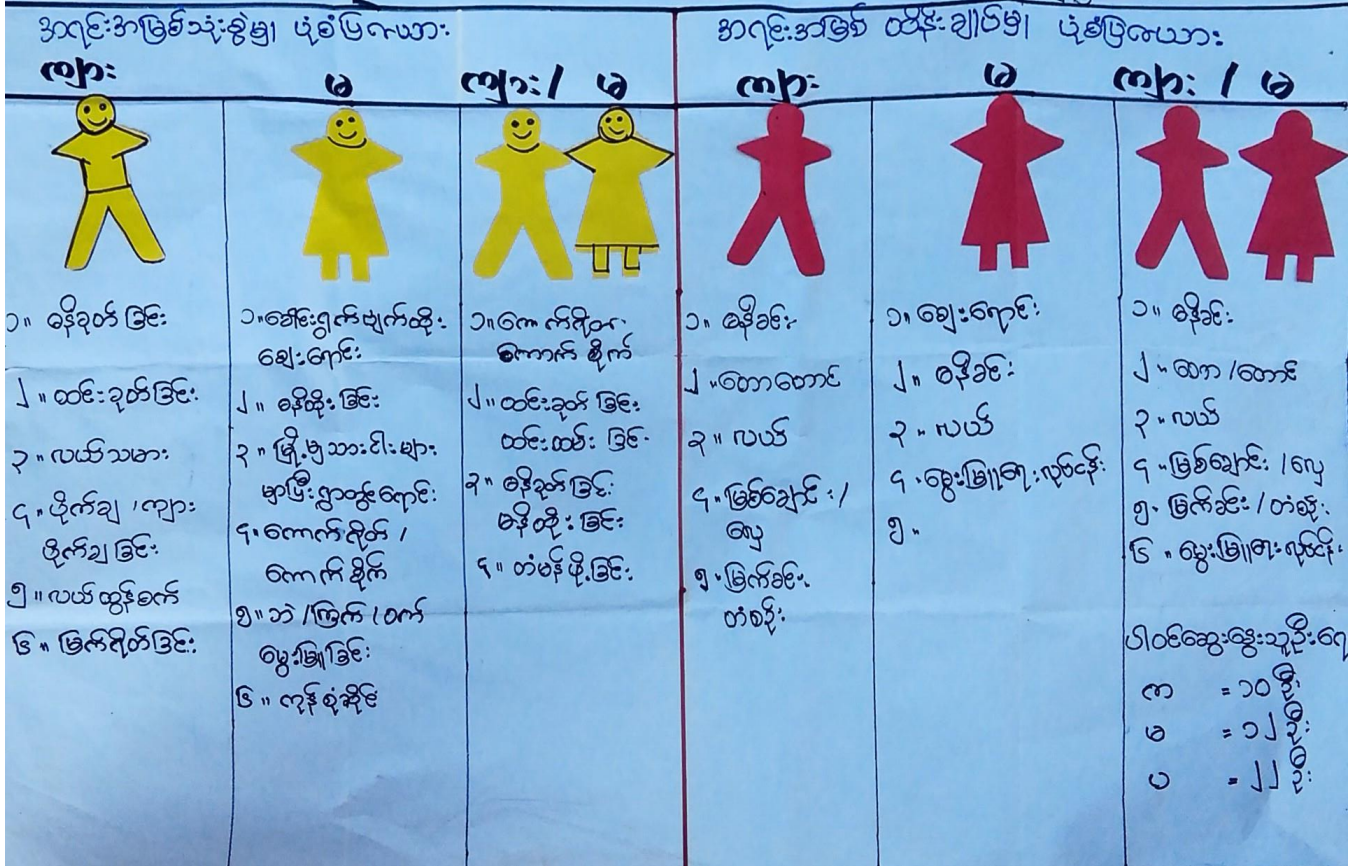 အရင်းအမြစ်သုံးစွဲမှု ပုံစံပြဇယား
ကျား
မ
ကျား / မ
၁။ ဓနိခုတ်ခြင်း
၂။ ထင်းခုတ်ခြင်း
၃။ လယ်သမား
၄။ ပိုက်ချ / ကျား
ပိုက်ချခြင်း
၅။ လယ်ထွန်စက်
၆။ မြက်ရိတ်ခြင်း
၁။ ခေါင်းရွက်ဗျက်ထိုး
ဈေးရောင်း
၂။ ဓနိထိုးခြင်း
၃။ မြို့မှသားငါးများ
မှာပြီးရွာတွင်ရောင်း
၄။ ကောက်ရိတ် /
ကောက်စိုက်
၅။ ဘဲ / ကြက် / ဝက်
မွေးမြူခြင်း
၆။ ကုန်စုံဆိုင်
၁။ ကောက်ရိတ်
ကောက်စိုက်
၂။ ထင်းခုတ်ခြင်း
ထင်းထမ်းခြင်း
၃။ ဓနိခုတ်ခြင်း
ဓနိထိုးခြင်း
၄။ တံမန်ဖို့ခြင်း
အရင်းအမြစ် ထိန်းချုပ်မှု ပုံစံပြဇယား
ကျား
မ
ကျား / မ
၁။ ဓနိခင်း
၂။ တောတောင်
၃။ လယ်
၄။ မြစ်ချောင်း /
လှေ
၅။ မြက်ခင်း
တံစဉ်း
၁။ ဈေးရောင်း
၂။ ဓနိခင်း
၃။ လယ်
၄။ မွေးမြူရေးလုပ်ငန်း
၅။
၁။ ဓနိခင်း
၂။ တော / တောင်
၃။ လယ်
၄။ မြစ်ချောင်း / လှေ
၅။ မြက်ခင်း / တံစဉ်း
၆။ မွေးမြူရေးလုပ်ငန်း
ပါဝင်ဆွေးနွေးသူဦးရေ
က = ၁၀ ဦး
မ = ၁၂ ဦး
ပ = ၂၂ ဦး